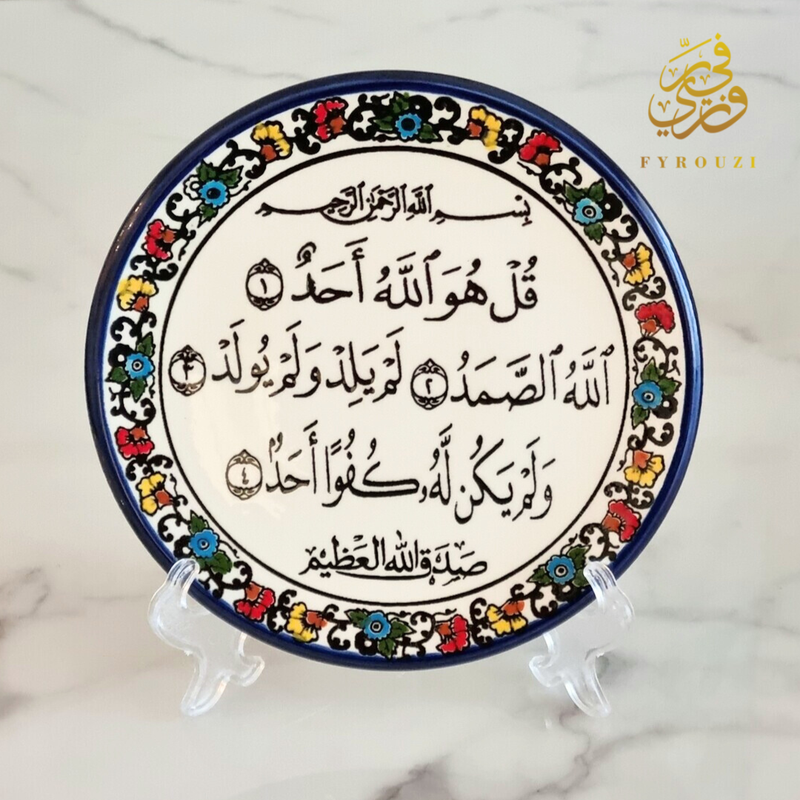 فيروزي
FYROUZI
بِسْمِ ٱللَّهِ ٱلرَّحْمَٰنِ ٱلرَّحِيمِ
قُلْ هُوَ ٱللَّهُ أَحَدٌ ١
ٱللَّهُ ٱلصَّمَدُ ٢ لَمْ يَلِدْ وَلَمْ يُولَدْ ٣
وَلَمْ يَكُن لَّهُۥ كُفُوًا أَحَدٌۢ ٤
صَدَقَ اللَّه العَظِيم